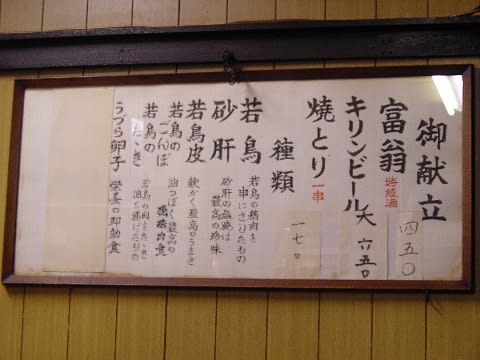 御献立
富翁 特経酒 四五〇
キリンビール大 六五〇
焼とり 一串 一七〇
種類
若鳥 若鳥の精肉を串にさしたもの
砂肝 砂肝の塩焼は最高の珍味
若鳥皮 軟かく最高のうまさ
若鳥のごんぼ 油っぽく最高の
若鳥のたゝき 若鳥の肉をたゝき
うづら卵子 栄養の即効食